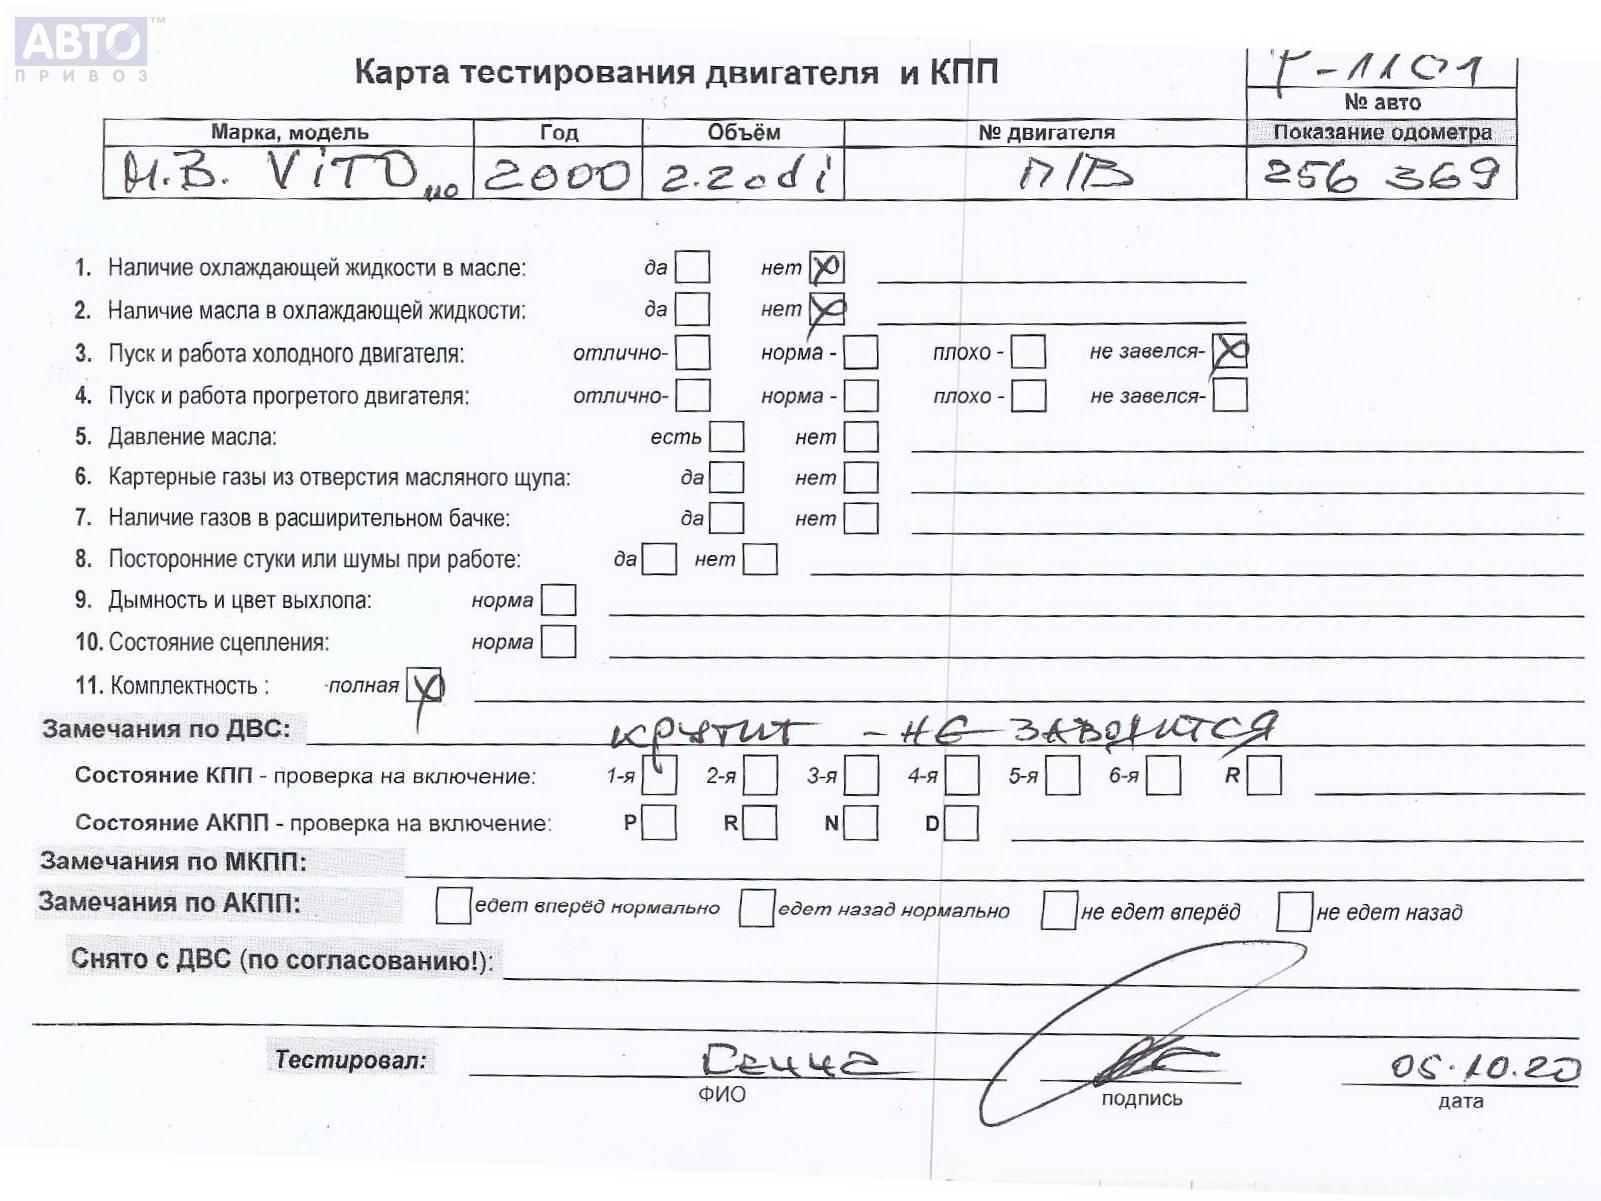 АВТО™
ПРИВОЗ
Карта тестирования двигателя и КПП
-1101
№ авто
Марка, модель Год Объём № двигателя Показание одометра
M.B. ViTO 110 2000 2.2cdi П/В 256 369
1. Наличие охлаждающей жидкости в масле: да нет
2. Наличие масла в охлаждающей жидкости: да нет
3. Пуск и работа холодного двигателя: отлично- норма - плохо - не завелся-
4. Пуск и работа прогретого двигателя: отлично- норма - плохо - не завелся-
5. Давление масла: есть нет
6. Картерные газы из отверстия масляного щупа: да нет
7. Наличие газов в расширительном бачке: да нет
8. Посторонние стуки или шумы при работе: да нет
9. Дымность и цвет выхлопа: норма
10. Состояние сцепления: норма
11. Комплектность : полная
Замечания по ДВС: крутит - не заводится
Состояние КПП - проверка на включение: 1-я 2-я 3-я 4-я 5-я 6-я R
Состояние АКПП - проверка на включение: P R N D
Замечания по МКПП:
Замечания по АКПП: едет вперёд нормально едет назад нормально не едет вперёд не едет назад
Снято с ДВС (по согласованию!):
Тестировал: 05.10.20
ФИО подпись дата